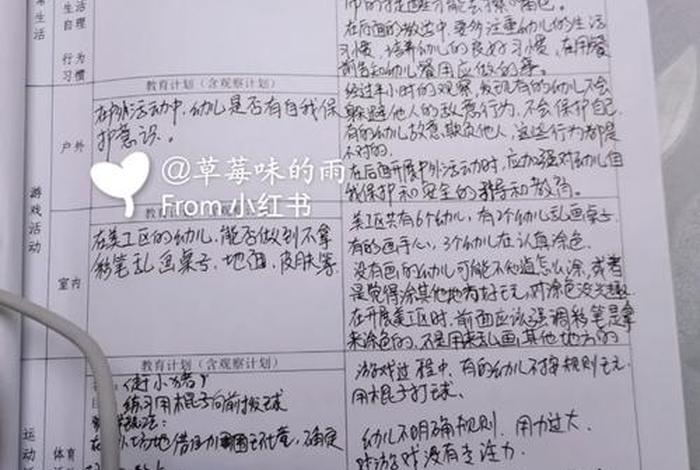 生活
自理
在后面的教学中，要多注重幼儿的生活
习惯，培养幼儿的良好习惯，在用餐
前告知幼儿餐用应做的事。
行为
习惯
教育计划（含观察计划）
在户外活动中，幼儿是否有自我保
护意识。
户外
经过半小时的观察，发现有的幼儿不会
躲避他人的敌意行为，不会保护自己
有的幼儿故意欺负他人，这些行为都是
不对的。
在后面开展户外活动时，应加强对幼儿自
我保护和安全的指导和教育。
@草莓味的雨
From 小红书
游戏活动
教育计划
在美工区的幼儿，能否做到不拿
彩笔乱画桌子、地面、皮肤等
室内
美工区共有6个幼儿，有2个幼儿乱画桌子，
有的画手心，3个幼儿在认真涂色，
没有画的幼儿可能不知道怎么涂，或者
是觉得涂其他地方好玩，对涂色没兴趣
在开展美工区时，前面应该强调彩笔是拿
来涂色的，不是用来乱画其他地方的
教育计划（含观察计划）
《赶小猪》
练习用棍子向前拨球
游戏过程中，有的幼儿不按规则玩
用棍子打球。
幼儿不明确规则，用力过大，
对游戏没有专注力。
运动
体育